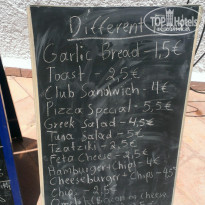 TOP HOTELS
Different
Garlic Bread - 1,5€
Toast - 2,5€
Club Sandwich - 4€
Pizza Special - 5,5€
Greek Salad - 4,5€
Tuna Salad - 5€
Tzatziki - 2,5€
Feta Cheese - 2,5€
Hamburger + Chips - 4€
Cheeseburger + Chips - 4,5
Chips - 2,5€